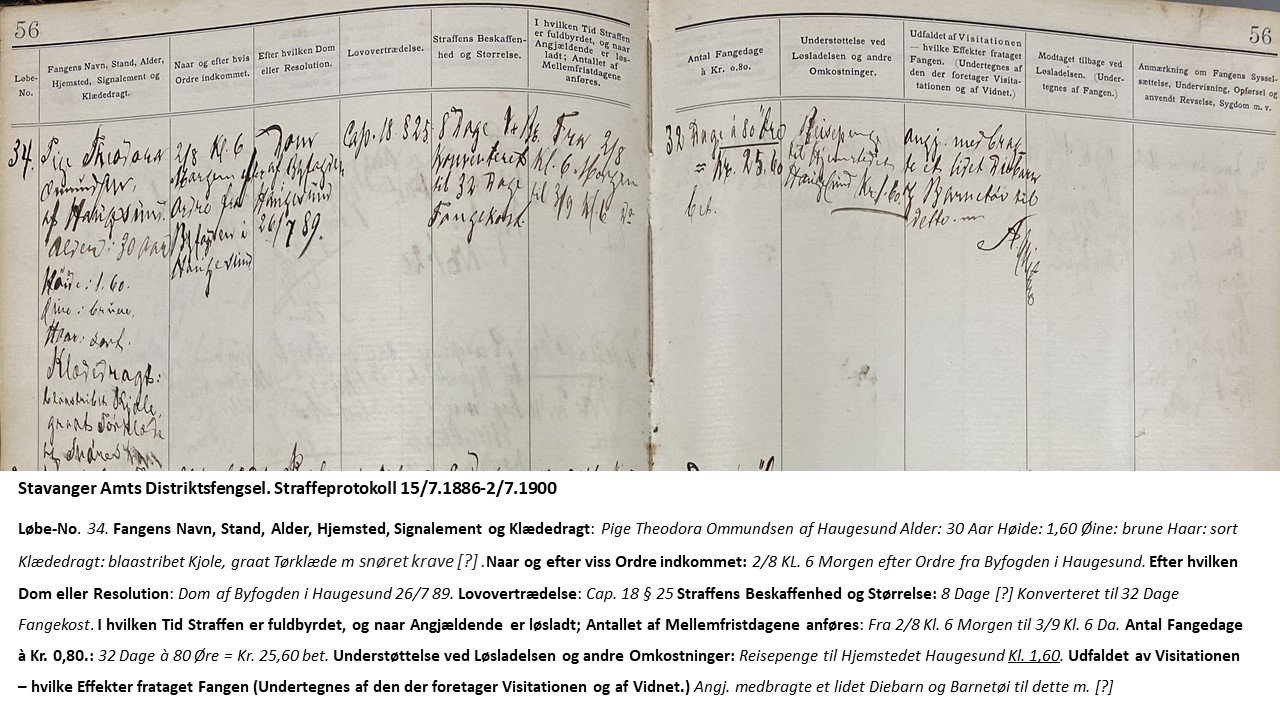 56
56
Løbe-
No.
Fangens Navn, Stand, Alder,
Hjemsted, Signalement og
Klædedragt.
Naar og efter hvis
Ordre indkommet.
Efter hvilken Dom
eller Resolution.
Lovovertrædelse.
Straffens Beskaffen-
hed og Størrelse.
I hvilken Tid Straffen
er fuldbyrdet, og naar
Angjældende er løs-
ladt; Antallet af
Mellemfristdagene
anføres.
Antal Fangedage
à Kr. 0.80.
Understøttelse ved
Løsladelsen og andre
Omkostninger.
Udfaldet af Visitationen
— hvilke Effekter frataget
Fangen. (Undertegnes af
den der foretager Visita-
tionen og af Vidnet.)
Modtaget tilbage ved
Løsladelsen. (Under-
tegnes af Fangen.)
Anmærkning om Fangens Syssel-
sættelse, Undervisning, Opførsel og
anvendt Revselse, Sygdom m. v.
34.
Pige Theodora
Ommundsen,
af Haugesund.
Alder: 30 Aar
Høide: 1.60.
Øine: brune.
Haar: sort.
Klædedragt:
blaastribet Kjole,
graat Tørklæde
2/8 Kl. 6
Morgen efter
Ordre fra
Byfogden i
Haugesund
Dom
af Byfogden
Haugesund
26/7 89.
Cap. 18 § 25
8 Dage
Konverteret
til 32 Dage
Fangekost.
Fra 2/8
Kl. 6 Morgen
til 3/9 Kl. 6
32 Dage à 80 Øre
= Kr. 25.60
bet.
Reisepenge
til Hjemstedet
Haugesund Kr. 1.60
Angj. medbrag-
te et lidet Diebarn
og Barnetøi til
dette
Stavanger Amts Distriktsfengsel. Straffeprotokoll 15/7.1886-2/7.1900
Løbe-No. 34. Fangens Navn, Stand, Alder, Hjemsted, Signalement og Klædedragt: Pige Theodora Ommundsen af Haugesund Alder: 30 Aar Høide: 1,60 Øine: brune Haar: sort
Klædedragt: blaastribet Kjole, graat Tørklæde m snøret krave [?] .Naar og efter viss Ordre indkommet: 2/8 KL. 6 Morgen efter Ordre fra Byfogden i Haugesund. Efter hvilken
Dom eller Resolution: Dom af Byfogden i Haugesund 26/7 89. Lovovertrædelse: Cap. 18 § 25 Straffens Beskaffenhed og Størrelse: 8 Dage [?] Konverteret til 32 Dage
Fangekost. I hvilken Tid Straffen er fuldbyrdet, og naar Angjældende er løsladt; Antallet af Mellemfristdagene anføres: Fra 2/8 Kl. 6 Morgen til 3/9 Kl. 6 Da. Antal Fangedage
à Kr. 0,80.: 32 Dage à 80 Øre = Kr. 25,60 bet. Understøttelse ved Løsladelsen og andre Omkostninger: Reisepenge til Hjemstedet Haugesund Kl. 1,60. Udfaldet av Visitationen
– hvilke Effekter frataget Fangen (Undertegnes af den der foretager Visitationen og af Vidnet.) Angj. medbragte et lidet Diebarn og Barnetøi til dette m. [?]